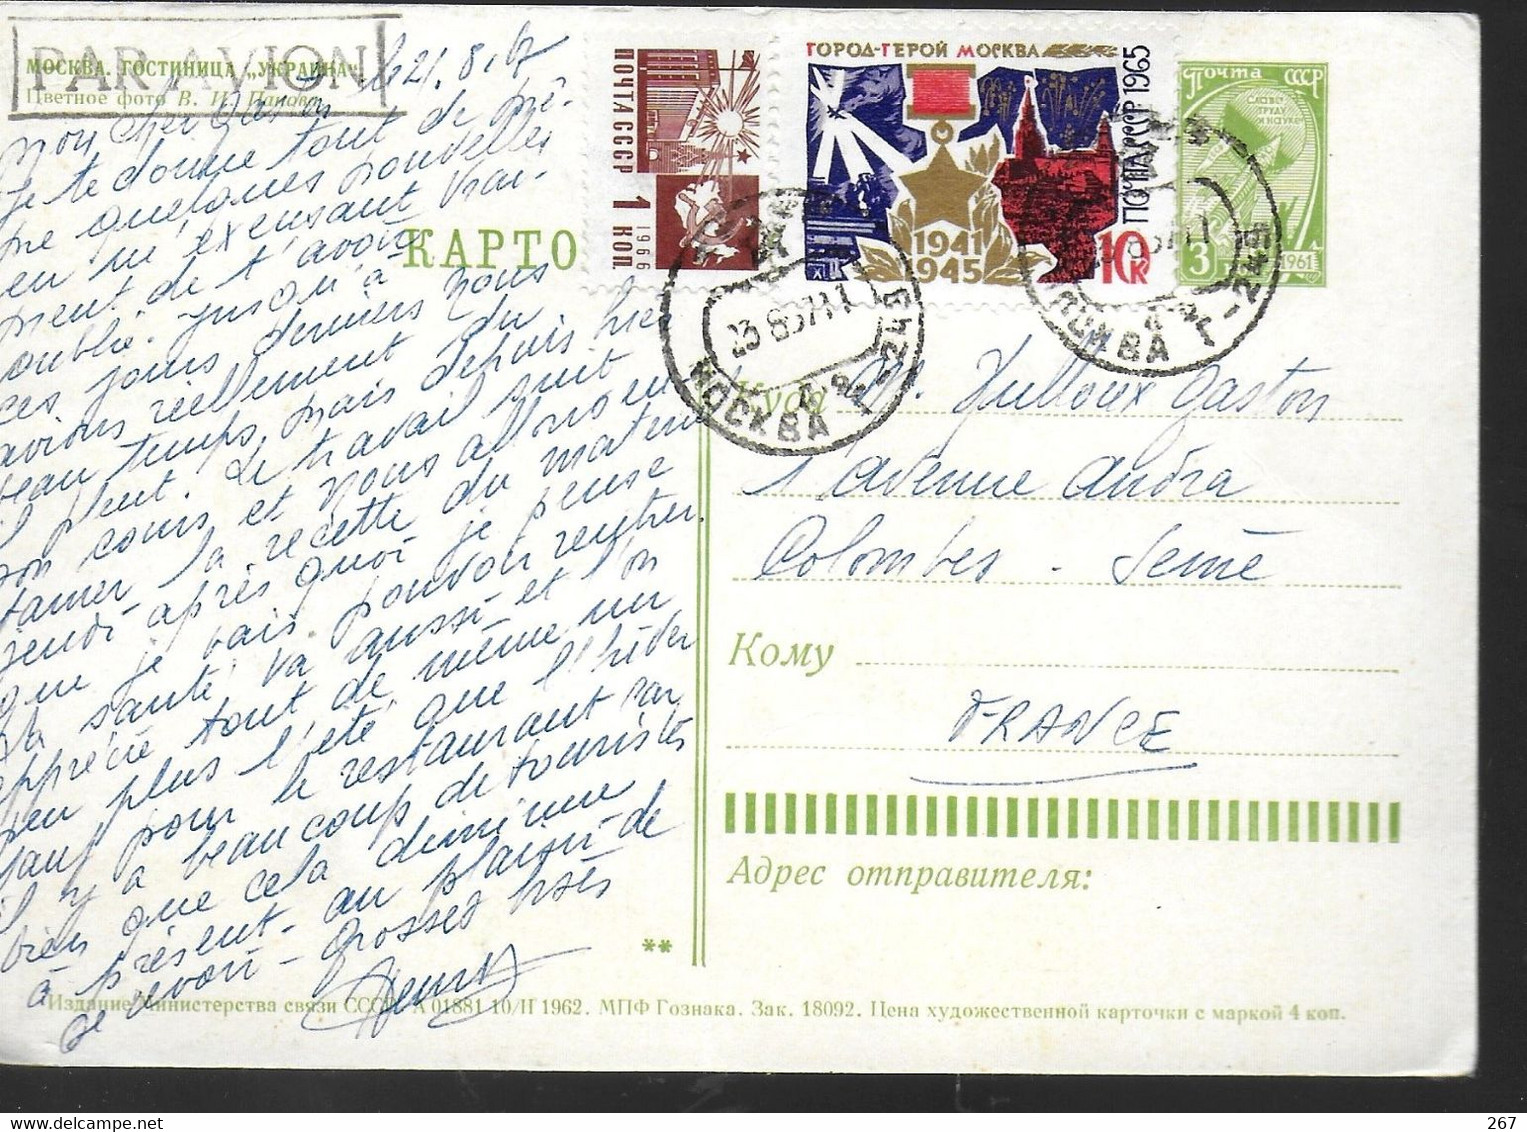 PAR AVION
МОСКВА. ГОСТИНИЦА „УКРАИНА“
Цветное фото В. И. Панова
le 21.8.67
Mon cher Gaston
Je te donne tout de mê-
me quelques nouvelles
en m'excusant vrai-
ment de t'avoir
oublié. Jusqu'à
ces jours derniers nous
avions réellement du
beau temps, mais depuis hier
il pleut. Le travail suit
son cours et nous allons en
tamer la recette du matériel
jeudi après quoi je pense
que je vais pouvoir rentrer.
La santé va aussi et l'on
apprécie tout de même un
peu plus l'été que l'hiver
sauf pour le restaurant car
il y a beaucoup de touristes
bien que cela diminue
à présent. au plaisir de
se revoir. Grosses bises
КАРТО
ПОЧТА СССР
1 КОП.
1966
ГОРОД-ГЕРОЙ МОСКВА
ПОЧТА СССР 1965
1941
1945
10К
Почта СССР
СЛАВА
ТРУДУ
И НАУКЕ
3 К
1961
МОСКВА Г-248
МОСКВА Г-248
Куда M. Julloux Gaston
1 avenue Andra
Colombes. Seine
Кому
FRANCE
Адрес отправителя:
**
Издание Министерства связи СССР. А 01881 10/II 1962. МПФ Гознака. Зак. 18092. Цена художественной карточки с маркой 4 коп.
267